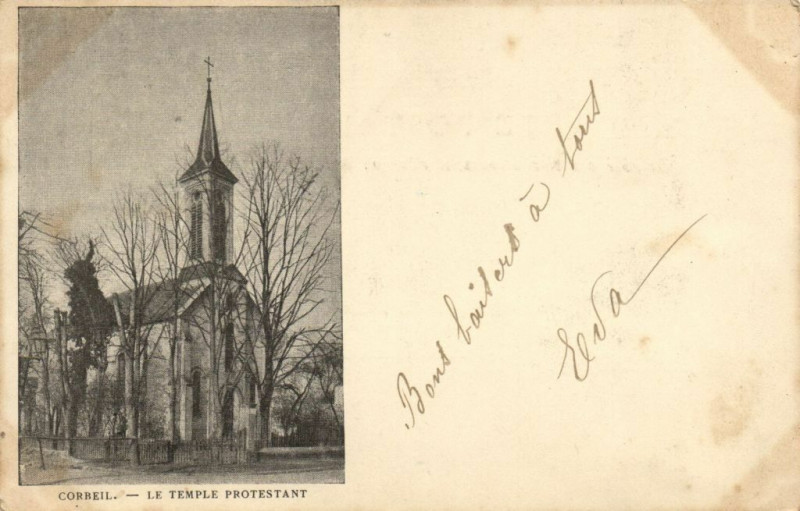 CORBEIL. — LE TEMPLE PROTESTANT
Bons baisers à tous
Eva